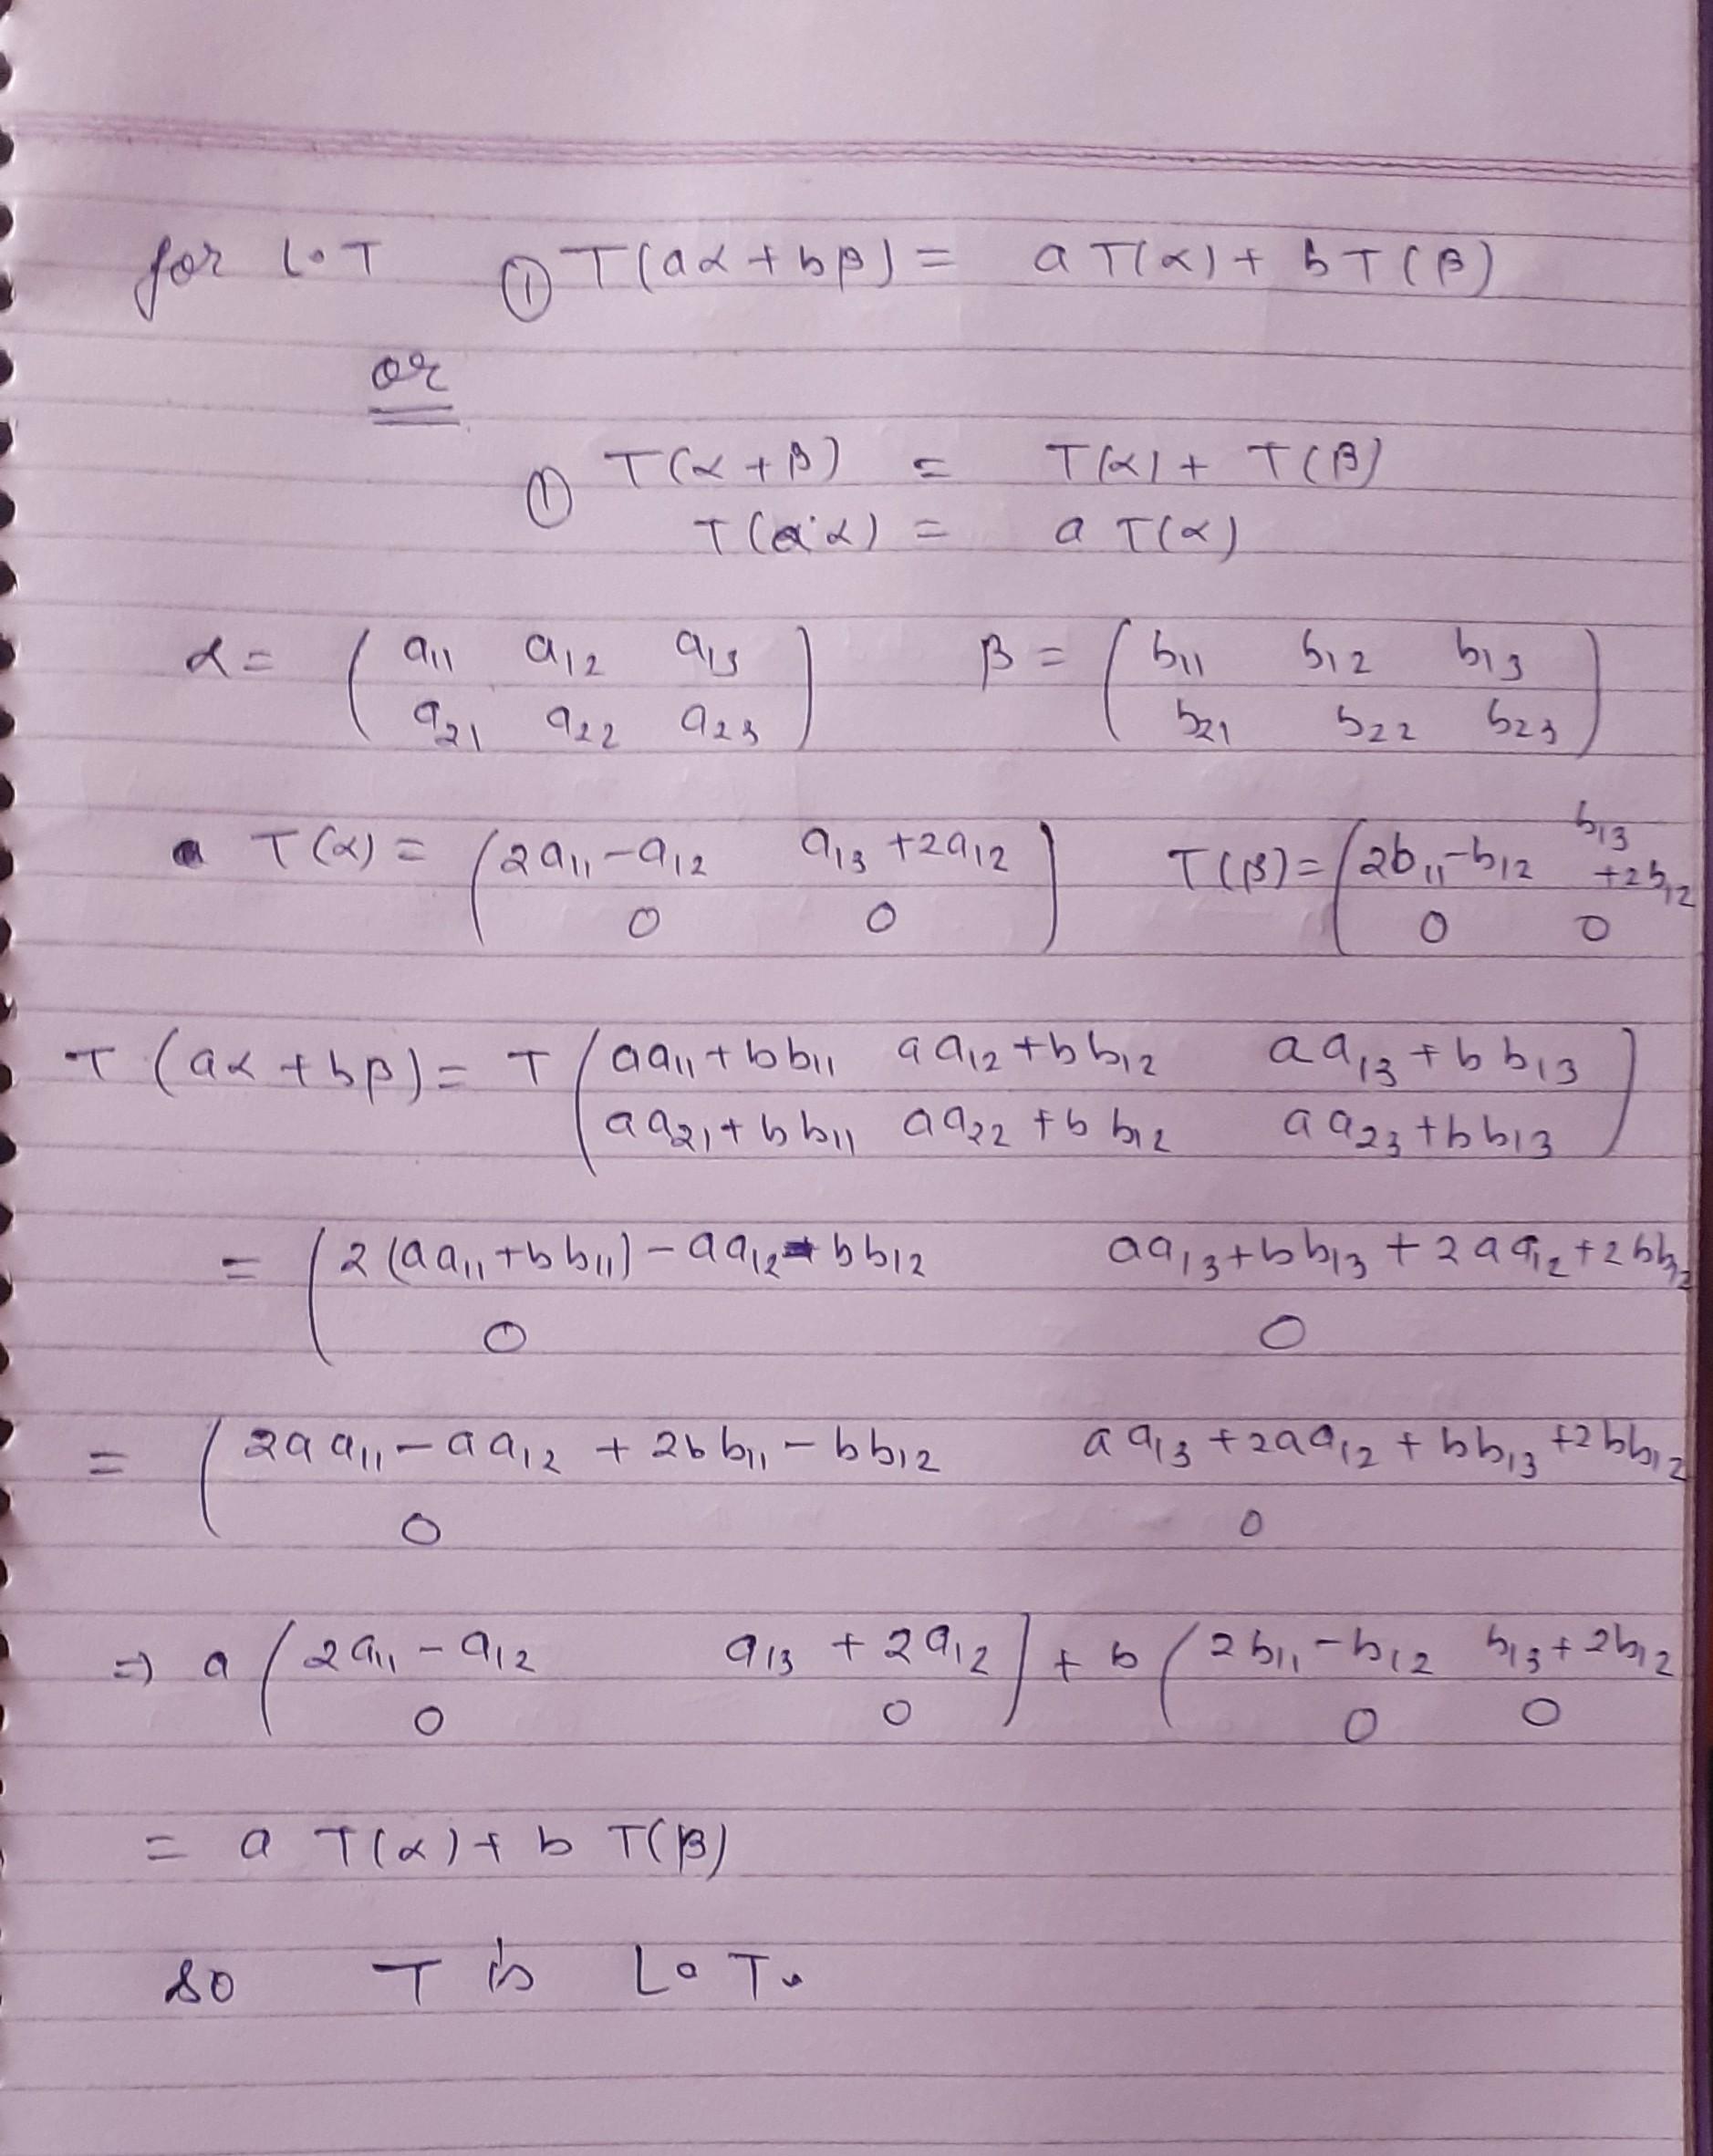 for L.T ① T(aα + bβ) = a T(α) + b T(β)
or
① T(α + β) = T(α) + T(β)
T(a·α) = a T(α)
α = ( a₁₁ a₁₂ a₁₃ ) β = ( b₁₁ b₁₂ b₁₃ )
( a₂₁ a₂₂ a₂₃ ) ( b₂₁ b₂₂ b₂₃ )
T(α) = ( 2a₁₁ - a₁₂ a₁₃ + 2a₁₂ ) T(β) = ( 2b₁₁ - b₁₂ b₁₃ + 2b₁₂
( 0 0 ) ( 0 0
T (aα + bβ) = T ( aa₁₁ + bb₁₁ aa₁₂ + bb₁₂ aa₁₃ + bb₁₃ )
( aa₂₁ + bb₁₁ aa₂₂ + bb₁₂ aa₂₃ + bb₁₃ )
= ( 2(aa₁₁ + bb₁₁) - aa₁₂ - bb₁₂ aa₁₃ + bb₁₃ + 2aa₁₂ + 2bb₁₂
( 0 0
= ( 2aa₁₁ - aa₁₂ + 2bb₁₁ - bb₁₂ aa₁₃ + 2aa₁₂ + bb₁₃ + 2bb₁₂
( 0 0
⇒ a ( 2a₁₁ - a₁₂ a₁₃ + 2a₁₂ ) + b ( 2b₁₁ - b₁₂ b₁₃ + 2b₁₂
( 0 0 ) ( 0 0
= a T(α) + b T(β)
so T is L.T.